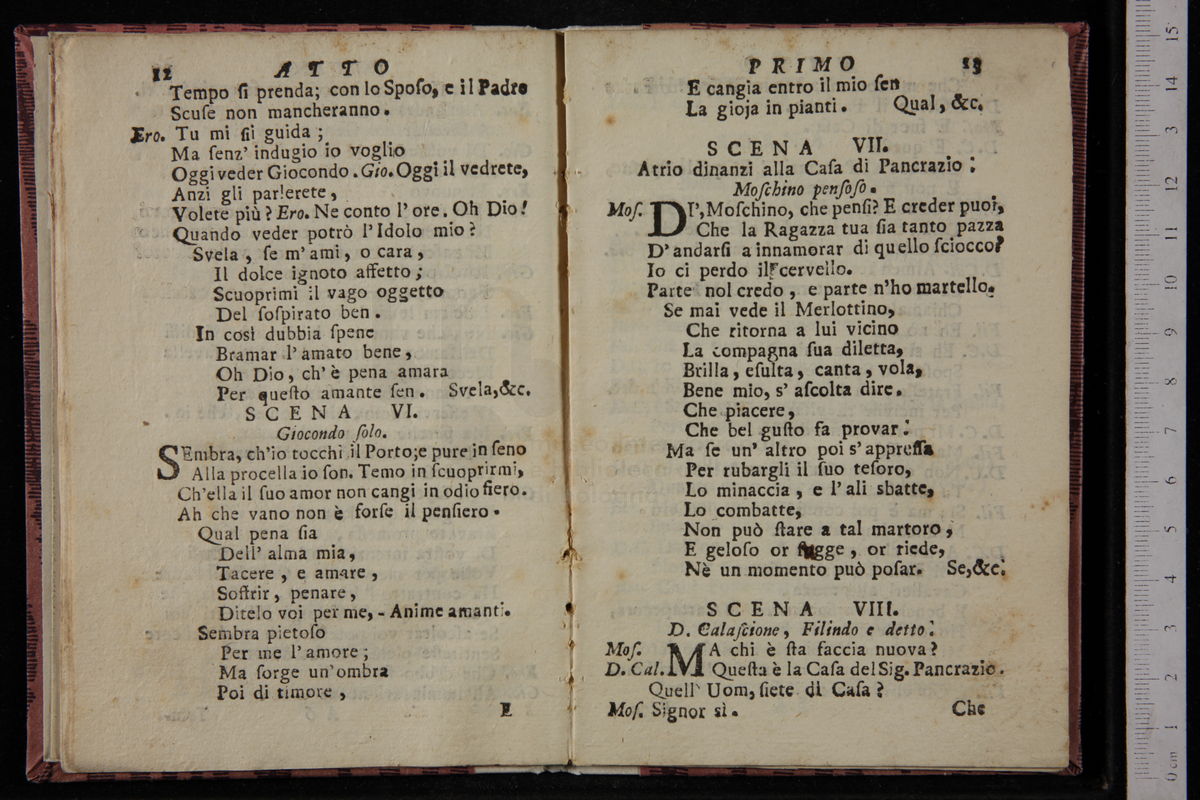 12 ATTO
Tempo ſi prenda; con lo Spoſo, e il Padre
Scuſe non mancheranno.
Ero. Tu mi ſii guida;
Ma ſenz' indugio io voglio
Oggi veder Giocondo. Gio. Oggi il vedrete,
Anzi gli parlerete,
Volete più? Ero. Ne conto l' ore. Oh Dio!
Quando veder potrò l' Idolo mio?
Svela, ſe m' ami, o cara,
Il dolce ignoto affetto;
Scuoprimi il vago oggetto
Del ſoſpirato ben.
In così dubbia ſpene
Bramar l' amato bene,
Oh Dio, ch' è pena amara
Per queſto amante ſen. Svela, &c.
SCENA VI.
Giocondo ſolo.
SEmbra, ch'io tocchi il Porto; e pure in ſeno
Alla procella io ſon. Temo in ſcuoprirmi,
Ch'ella il ſuo amor non cangi in odio fiero.
Ah che vano non è forſe il penſiero.
Qual pena ſia
Dell' alma mia,
Tacere, e amare,
Soffrir, penare,
Ditelo voi per me, - Anime amanti.
Sembra pietoſo
Per me l' amore;
Ma ſorge un' ombra
Poi di timore,
E
PRIMO 13
E cangia entro il mio ſen
La gioja in pianti. Qual, &c.
SCENA VII.
Atrio dinanzi alla Caſa di Pancrazio.
Moſchino penſoſo.
Moſ. DI', Moſchino, che penſi? E creder puoi,
Che la Ragazza tua ſia tanto pazza
D' andarſi a innamorar di quello ſciocco?
Io ci perdo il cervello.
Parte nol credo, e parte n'ho martello.
Se mai vede il Merlottino,
Che ritorna a lui vicino
La compagna ſua diletta,
Brilla, eſulta, canta, vola,
Bene mio, s' aſcolta dire.
Che piacere,
Che bel guſto fa provar.
Ma ſe un' altro poi s' appreſſa
Per rubargli il ſuo teſoro,
Lo minaccia, e l' ali sbatte,
Lo combatte,
Non può ſtare a tal martoro,
E geloſo or fugge, or riede,
Nè un momento può poſar. Se, &c.
SCENA VIII.
D. Calaſcione, Filindo e detto.
Moſ. MA chi è ſta faccia nuova?
D. Cal. Queſta è la Caſa del Sig. Pancrazio.
Quell' Uom, ſiete di Caſa?
Moſ. Signor sì.
Che
0 cm 1 2 3 4 5 6 7 8 9 10 11 12 13 14 15